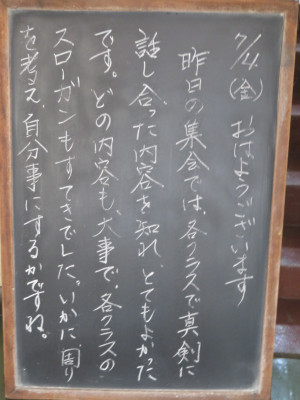 7/4(金) おはようございます
昨日の集会では、各クラスで真剣に
話し合った内容を知れ、とてもよかった
です。どの内容も、大事で、各クラスの
スローガンもすてきでした。いかに、周り
を考え、自分事にするかですね。